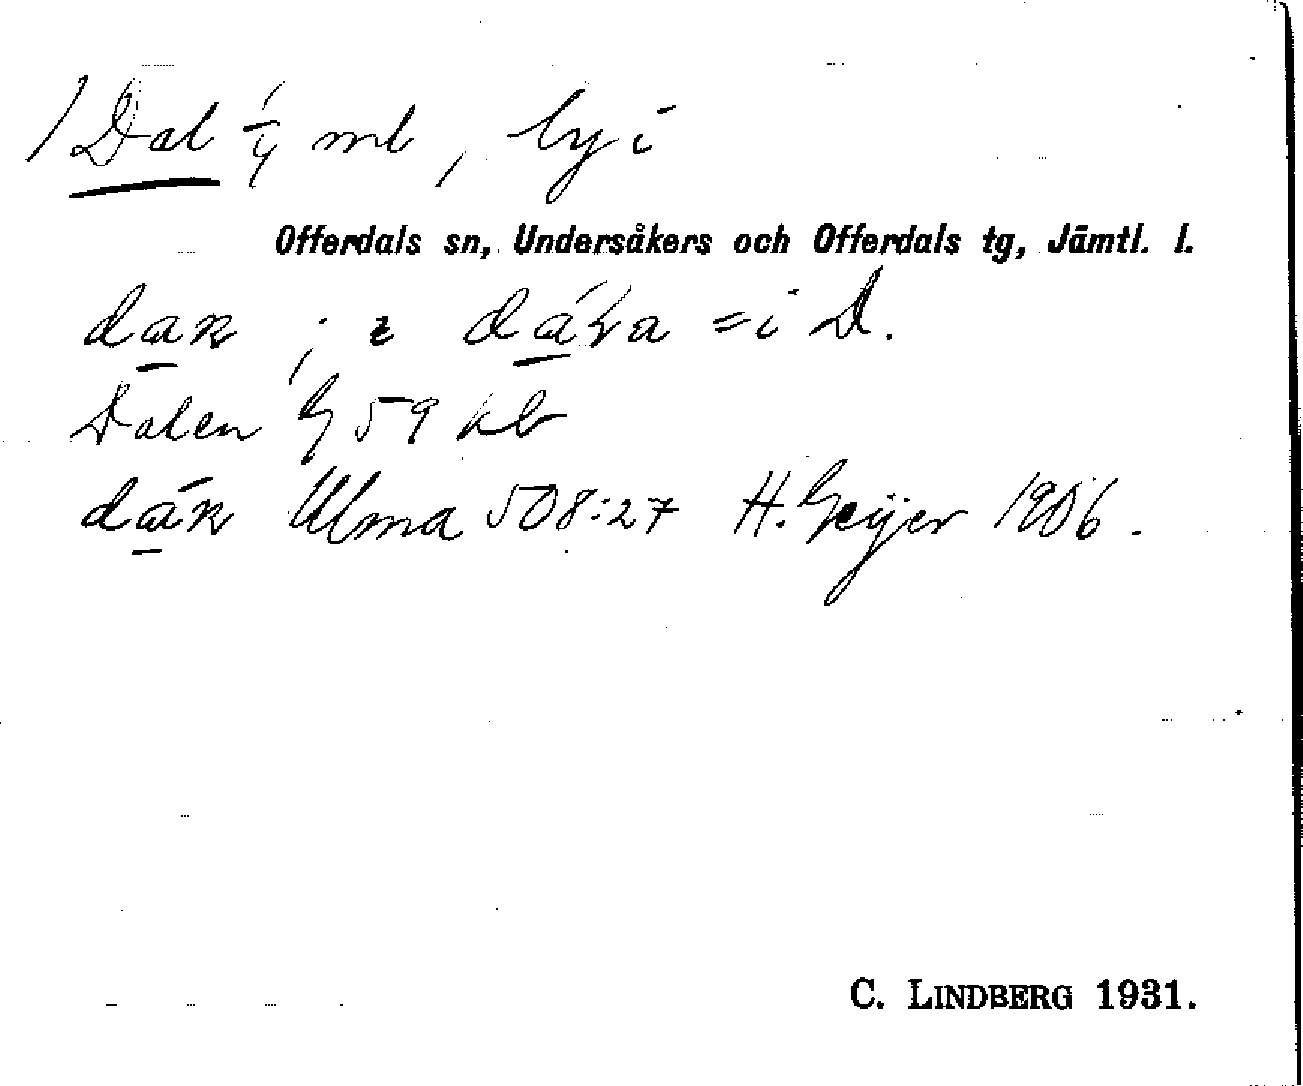 1) Dal 1/4 mtl, by i
Offerdals sn, Undersåkers och Offerdals tg, Jämtl. l.
dan ; = i D.
Dalen
dán Ulma 508:27 H. Geijer 1906.
C. LINDBERG 1931.